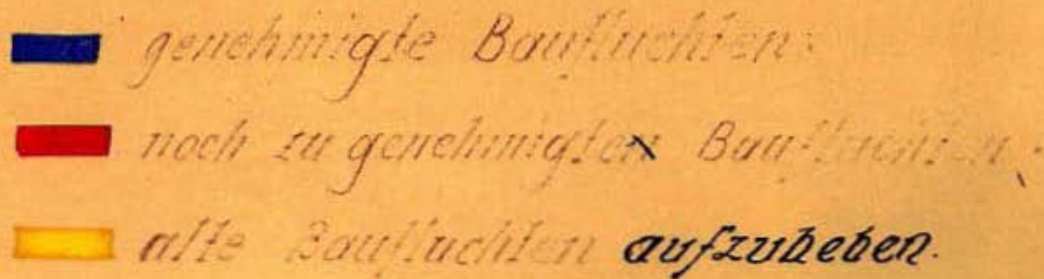 genehmigte Baufluchten:
noch zu genehmigten Baufluchten.
alte Baufluchten aufzuheben.